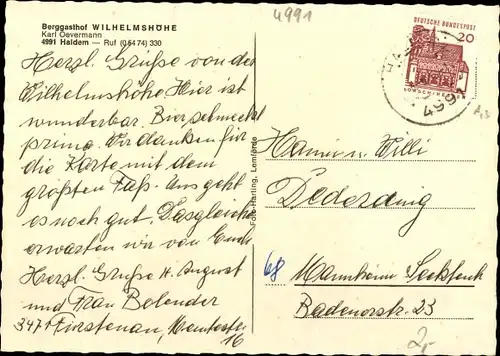 4991
Berggasthof WILHELMSHÖHE
Karl Oevermann
4991 Haldem — Ruf (05474) 330
Herzl. Grüße von der
Wilhelmshöhe Hier ist
wunderbar. Bier schmeckt
prima. Wir danken für
die Karte mit dem
größten Faß. Uns geht
es noch gut. Dasgleiche
erwarten wir von Euch
Herzl. Grüße H. August
und Frau Belender
3471 Fürstenau,
16
Foto-Harling, Lemförde
DEUTSCHE BUNDESPOST
20
4991
Hanni u. Willi
Dederding
68 Mannheim Seckenh
Badenerstr. 23
2,-